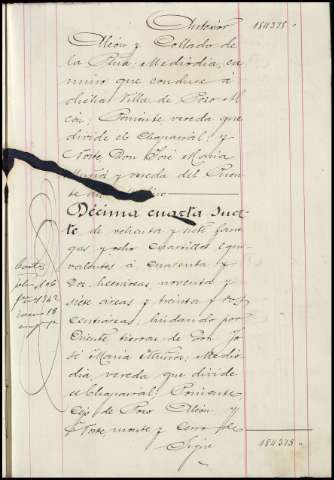 Anterior 184375.
Alcón y Collado de
la Rua; Mediodía, ca
mino que conduce á
dicha Villa de Pozo Al
cón; Poniente vereda que
divide el Chaparral; y
Norte Don José María
y vereda del Puente
Décima cuarta Suer
te de ochenta y siete fane
gas y ocho cuartillos equi
valentes á cuarenta y
hectáreas noventa y
siete áreas y treinta y
centiáreas, lindando por
Oriente tierras de Don Jo
sé María; Medio
día, vereda que divide
el Chaparral; Poniente
de Pozo Alcón, y
Norte, monte y Cerro del
Sigue 184375.